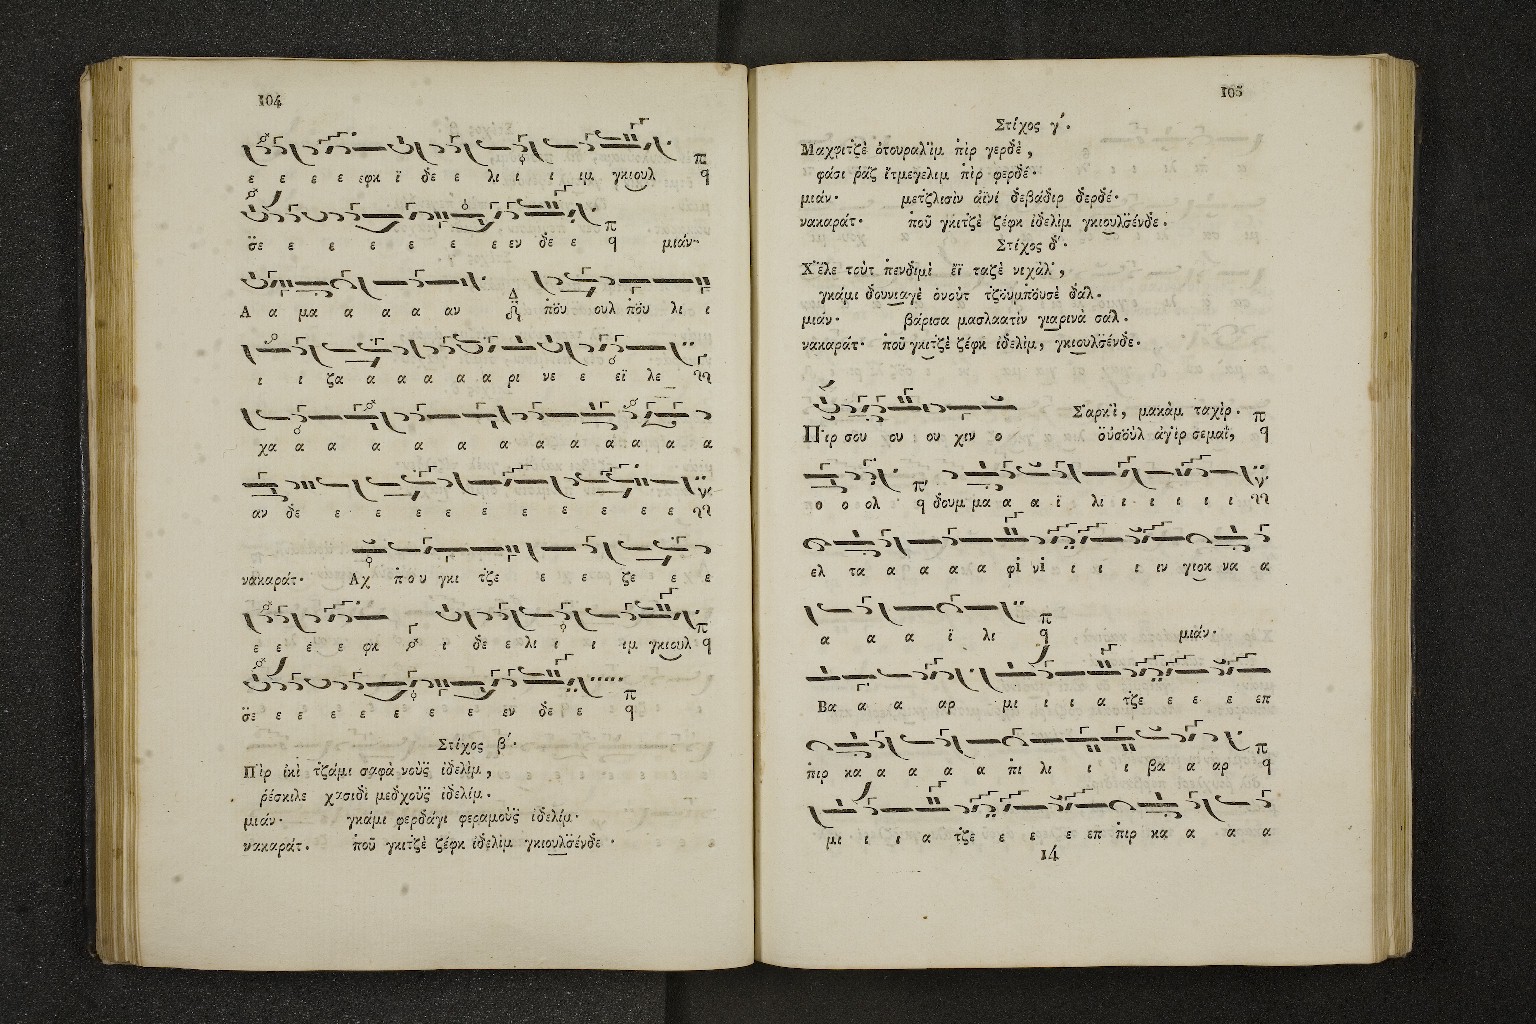 104
ε ε ε ε εφκ ϊ δε ε λι ι ι ιμ γκιουλ
σ̈ε ε ε ε ε ε ε εν δε ε μιάν·
Α α μα α α α αν π̇όυ ουλ π̇όυ λι ι
ι ι ζα α α α α α ρι νε ε εϊ λε
χα α α α α α α α α α α α α
αν δε ε ε ε ε ε ε ε ε ε ε
νακαράτ· Αχ π̇ου γκι τζε ε ε ζε ε ε
ε ε ε ε φκ ι δε ε λι ι ι ιμ γκιουλ
σ̈ε ε ε ε ε ε ε ε εν δε ε
Στίχος β΄.
Π̇ὶρ ἰκὶ τζάμι σαφὰ νοὺς̈ ἰδελὶμ,
ῥέσκιλε χασιδὶ μεδχοὺς̈ ἰδελίμ.
μιάν· γκάμι φερδάγι φεραμοὺς̈ ἰδελίμ·
νακαράτ. π̇οῦ γκιτζὲ ζέφκ ἰδελὶμ γκιουλσ̈ένδε·
105
Στίχος γ΄.
Μαχφιτζὲ ὀτουραλ̇ὶμ π̇ὶρ γερδὲ,
φάσι ῥάζ ἔτμεγελιμ π̇ὶρ φερδέ·
μιάν· μετζλισὶν ἀϊνί δεβάδιρ δερδέ·
νακαράτ· π̇οῦ γκιτζὲ ζέφκ ἰδελὶμ γκιουλσ̈ένδε.
Στίχος δ΄.
Χ̇ἔλε τοὺτ π̇ενδιμὶ ἔϊ ταζὲ νιχὰλ̇,
γκάμι δουνιαγὲ ὀνοὺτ τζὸυμπ̇όυσὲ δάλ.
μιάν· βάρισα μασλαατὶν γιαρινὰ σάλ.
νακαράτ· π̇οῦ γκιτζὲ ζέφκ ἰδελὶμ, γκιουλσ̈ένδε.
Σαρκ̇ὶ, μακὰμ ταχὶρ.
Π̇ιρ σου ου ου χιν ο ὀυσὀὺλ ἀγ̇ὶρ σεμαΐ,
ο ο ολ δουμ μα α α ϊ λι ι ι ι ι ι
ελ τα α α α α φ̇ὶ νὶ ι ι ι ιν γιοκ να α
α α α ϊ λι μιάν·
Βα α α αρ μι ι ι α τζε ε ε ε επ
π̇ιρ κα α α α α π̇ι λι ι ι βα α αρ
μι ι ι α τζε ε ε ε επ π̇ιρ κα α α α
14